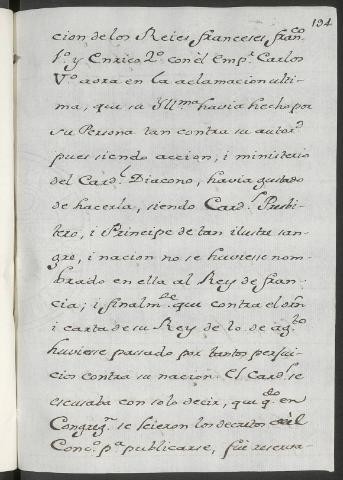 194
cion de los Reies franceses, fran.co
1.o y Enrico 2.o con el Emp.r Carlos
V.o aora en la aclamacion ulti-
ma, que su Ill.ma havia hecho por
su Persona tan contra su autor.d
pues siendo accion, i ministerio
del Card.l Diacono, havia gustado
de hacerla, siendo Card.l Presbi-
tero, i Principe de tan ilustre san-
gre, i nacion no se huviesse nom-
brado en ella al Rey de Fran-
cia; i finalm.te que contra el orn
i carta de su Rey de 10. de ag.to
huviesse passado por tantos perjui-
cios contra su nacion. El Card.l se
escusaba con solo decir, que q.do en
Congreg.n se leieron los decretos del
Conc.o p.a publicarse, fue reserva-